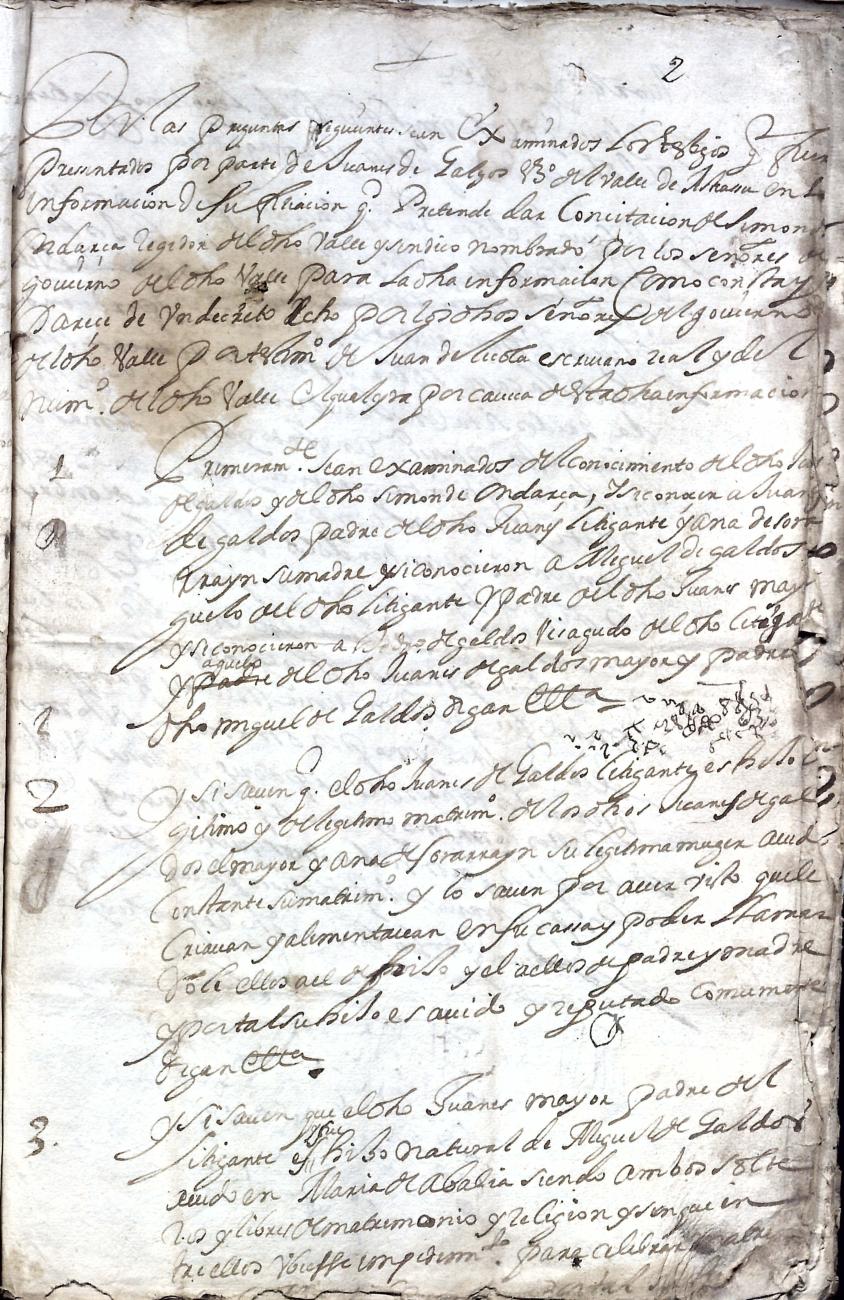 2
Por las preguntas siguientes sean Examinados Los testigos q. fueren
Presentados por parte de Juanes de Galdos Vzº del Valle de Arama en la
informacion de su filiacion q. Pretende dar Con citacion de Simon de
Ondarça Regidor del dho Valle y sindico nombrado por los señores de
govierno del dho Valle para la dha informacion Como consta y
Parece de Un decreto hecho por los dhos señores del govierno
del dho Valle por testimº de Juan de escrivano real y del
Numº. del dho Valle El qual por cavça de dha informacion
1 Primeramte. sean examinados del conocimiento del dho Juanes
de galdos y del dho simon de Ondarça, Y si conocen a Juanes
de galdos padre del dho Juanes Litigante y ana de sora
rrayn su madre y si conocieron a Miguel de galdos
guelo del dho litigante y padre del dho Juanes mayor
y si conocieron a Pedro de galdos Visaguelo del dho litigante
aguelo
y padre del dho Juanes de galdos mayor y padre
dho miguel de Galdos digan etta
2 Y si saven q. el dho Juanes de Galdos litigante es hijo le
gitimo y de legitimo matrimº. de los dhos Juanes de gal
dos el mayor y ana de sorarrayn su legitima muger avido
Constante su matrimº. y lo saven por aver visto que le
Criavan y alimentavan en su cassa y poder llaman
dole ellos a el de hijo y el a ellos de padre y madre
y por tal su hijo es avido y reputado comunmente
digan etta
3. Y si saven que el dho Juanes mayor padre del
y fue
litigante es hijo natural de Miguel de Galdos
avido en Maria de Abalia siendo ambos solte
ros y libres de matrimonio y religion y sin que en
tre ellos Ubiesse impedimto. para celebrar